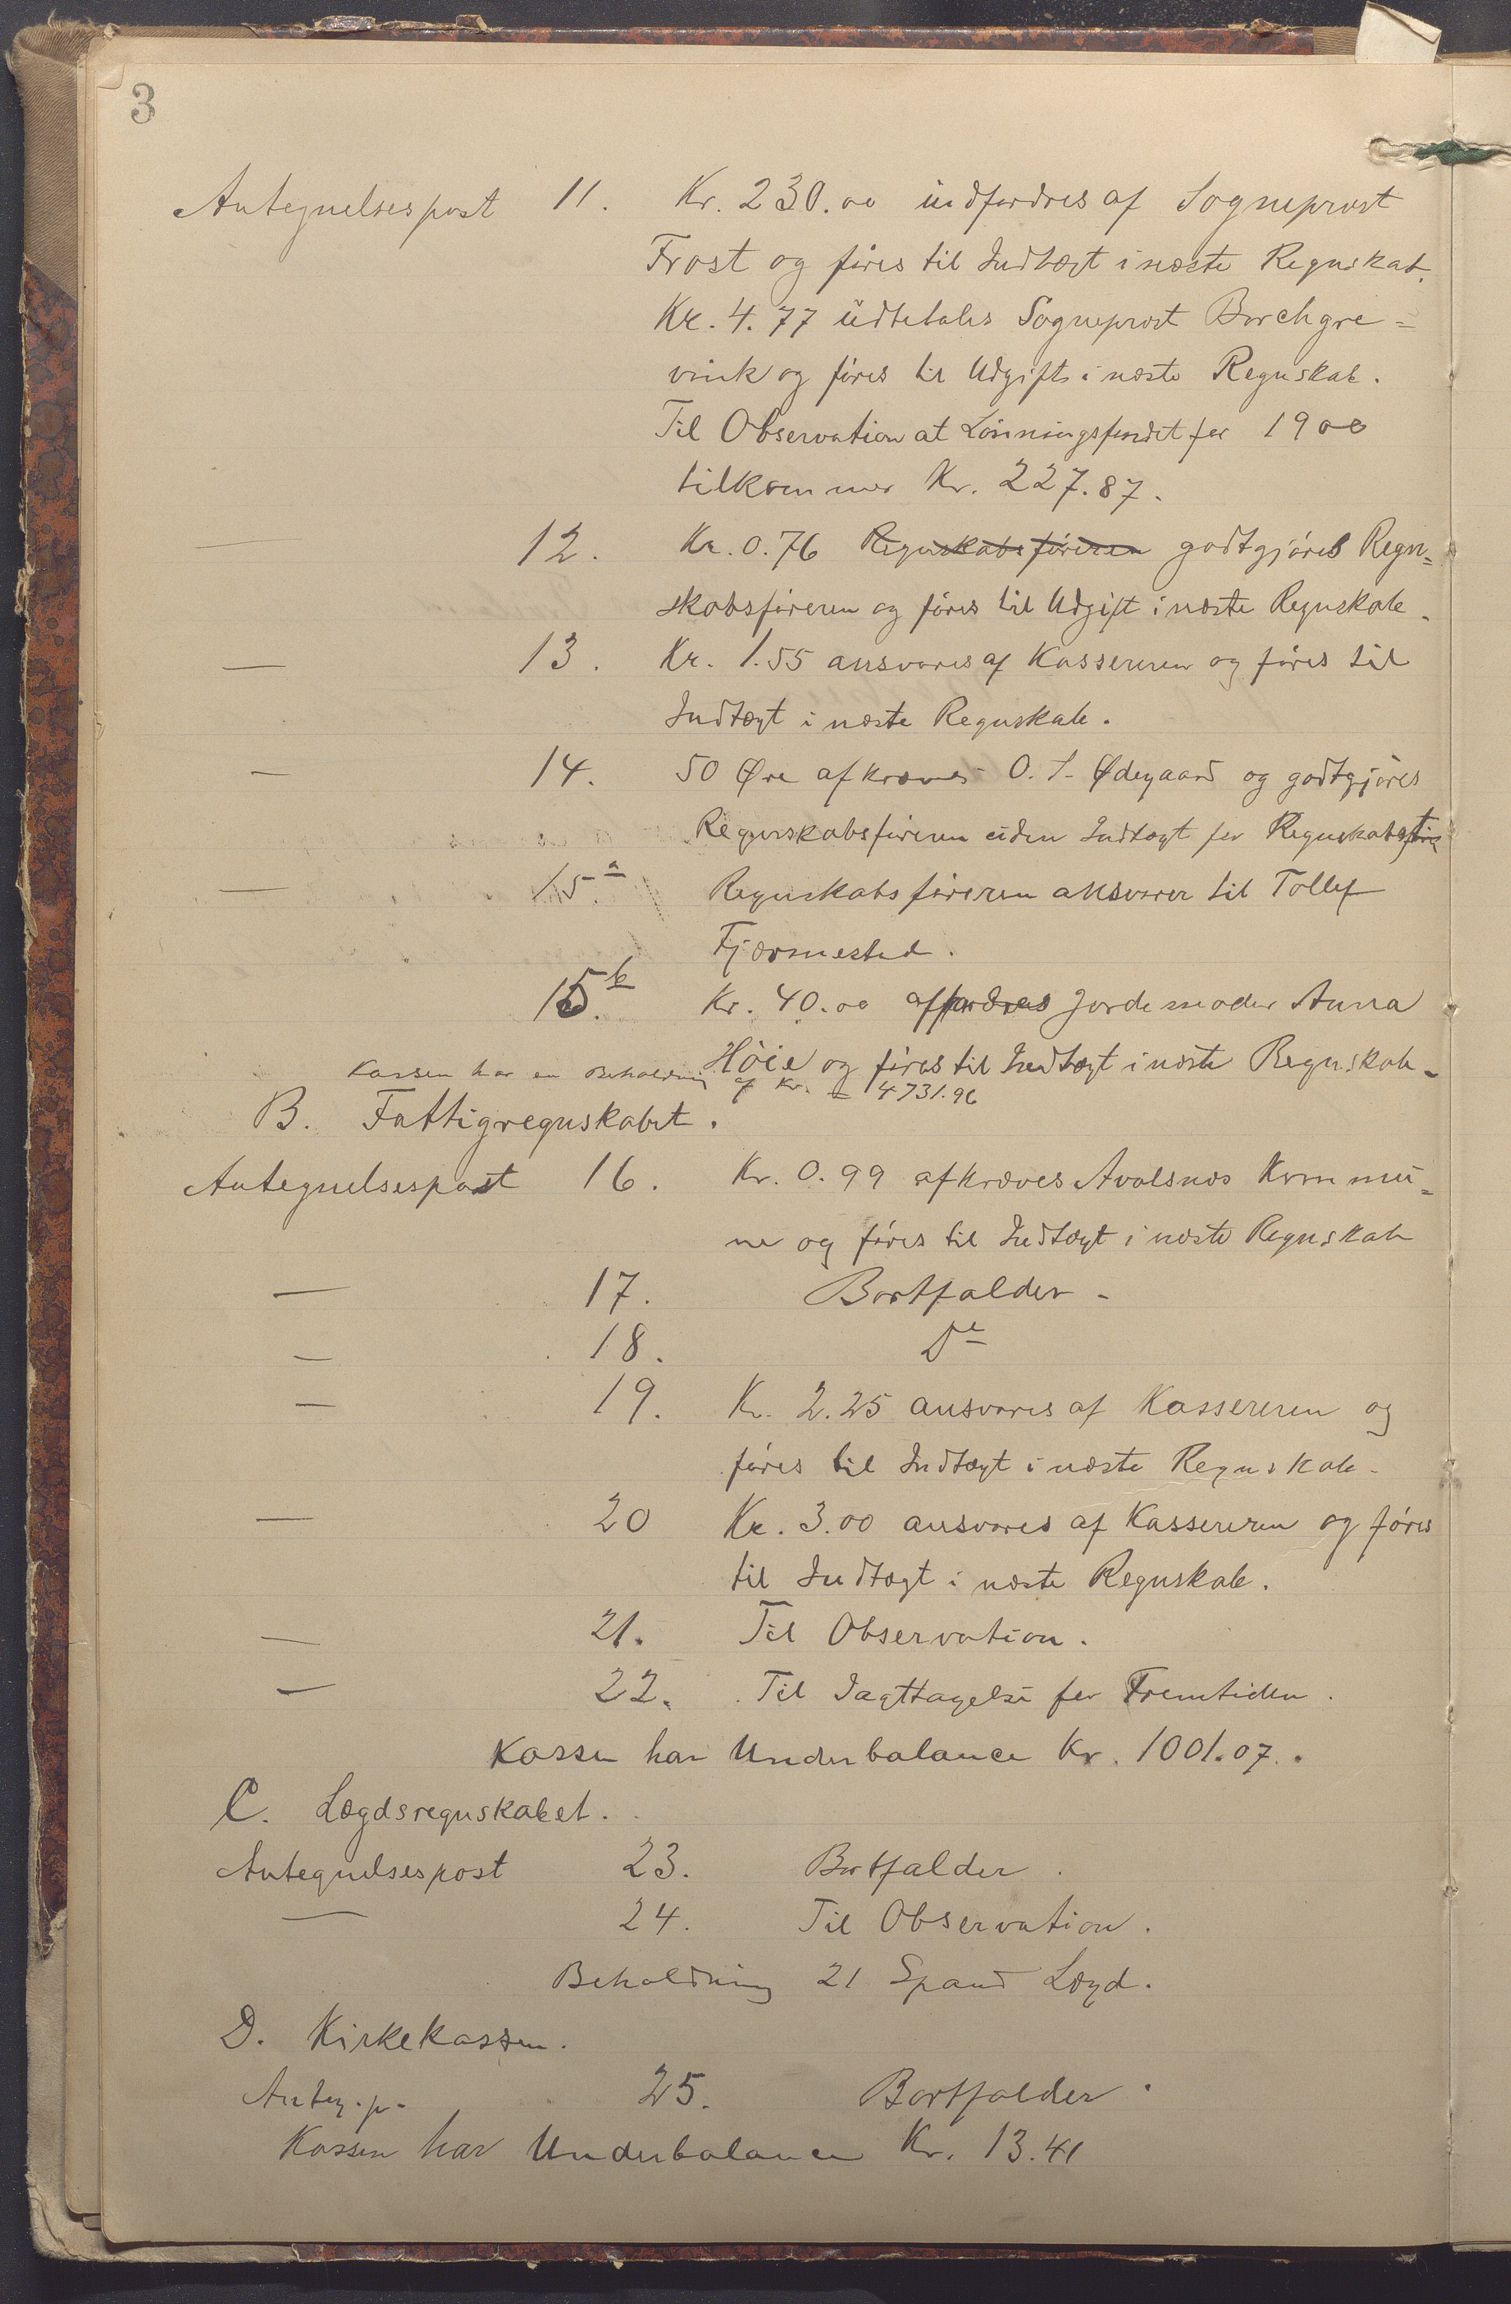 3
Antegnelsespost 11. Kr. 230.00 indfordres af Sogneprost
Frost og føres til Indtægt i næste Regnskab.
Kr. 4.77 udbetales Sogneprost Borchgre=
vink og føres til Udgift i næste Regnskab.
Til Observation at Lønningsfondet for 1900
tilkommer Kr. 227.87.
— 12. Kr. 0.76 Regnskabsføreren godtgjøres Regn=
skabsføreren og føres til Udgift i næste Regnskab.
— 13. Kr. 1.55 ansvares af Kassereren og føres til
Indtægt i næste Regnskab.
— 14. 50 Øre afkræves O. T. Ødegaard og godtgjøres
Regnskabsføreren uden Indtægt for Regnskabet
— 15a. Regnskabsføreren ansvarer til Tollef
Fjærmested.
15b. Kr. 40.00 affordres Jordemoder Anna
Høie og føres til Indtægt i næste Regnskab.
Kassen har en Beholdning af Kr. 4731.96
B. Fattigregnskabet.
Antegnelsespost 16. Kr. 0.99 afkræves Avalsnes Kommu=
ne og føres til Indtægt i næste Regnskab
— 17. Bortfalder.
— 18. Do
— 19. Kr. 2.25 ansvares af Kassereren og
føres til Indtægt i næste Regnskab.
— 20 Kr. 3.00 ansvares af Kassereren og føres
til Indtægt i næste Regnskab.
— 21. Til Observation.
— 22. Til Iagttagelse for Fremtiden.
Kassen har Underbalance Kr. 1001.07.
C. Lægdsregnskabet.
Antegnelsespost 23. Bortfalder.
— 24. Til Observation.
Beholdning 21 Spand Lægd.
D. Kirkekassen.
Anteg.p. 25. Bortfalder.
Kassen har Underbalance Kr. 13.41